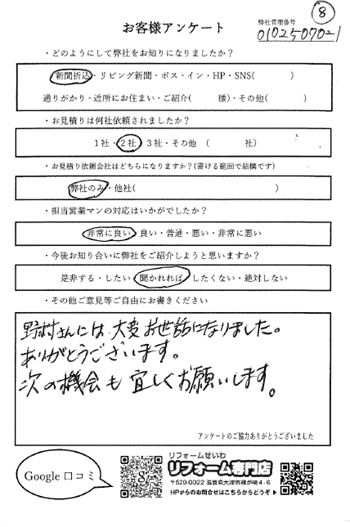 ⑧
お客様アンケート
弊社管理番号
0102507021
・どのようにして弊社をお知りになりましたか?
新聞折込・リビング新聞・ポストイン・HP・SNS( )
通りがかり・近所にお住まい・ご紹介( 様)・その他( )
・お見積りは何社依頼されましたか?
1社・2社・3社・その他 ( 社)
・お見積り依頼会社はどちらになりますか?(書ける範囲で結構です)
弊社のみ・他社( )
・担当営業マンの対応はいかがでしたか?
非常に良い・良い・普通・悪い・非常に悪い
・今後お知り合いに弊社をご紹介しようと思いますか?
是非する・したい・聞かれれば・したくない・絶対しない
・その他ご意見等ご自由にお書きください
野村さんには大変お世話になりました。
ありがとうございます。
次の機会も宜しくお願いします。
アンケートのご協力ありがとうございました
Google口コミ
リフォームせいわ
リフォーム専門店
〒520-0022 滋賀県大津市柳が崎4-6
HPからのお問合せはこちらからどうぞ▶